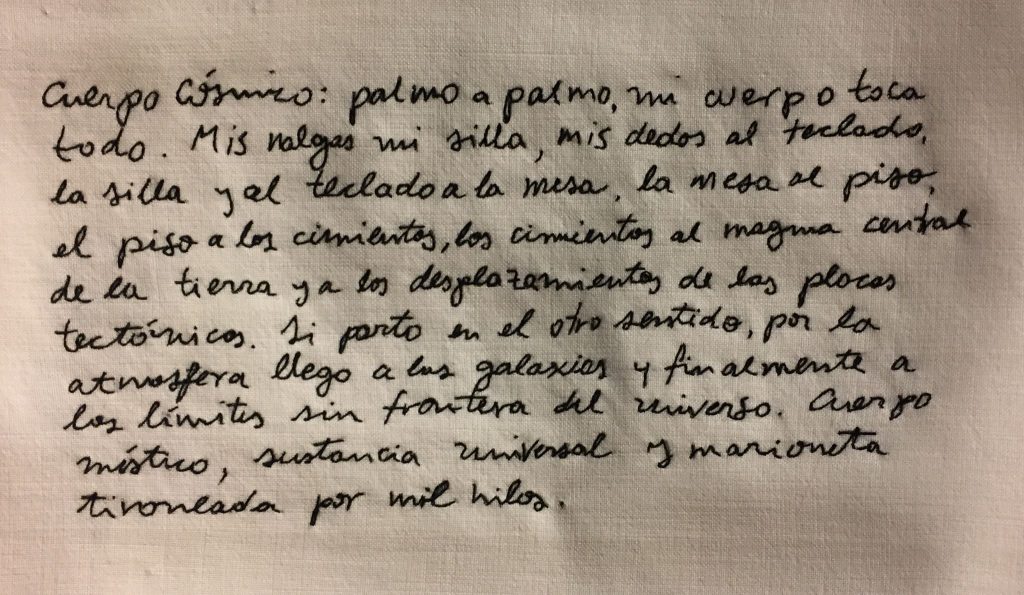 Cuerpo Cósmico: palmo a palmo, mi cuerpo toca
todo. Mis nalgas mi silla, mis dedos al teclado,
la silla y al teclado a la mesa, la mesa al piso,
el piso a los cimientos, los cimientos al magma central
de la tierra y a los desplazamientos de las placas
tectónicas. Si parto en el otro sentido, por la
atmosfera llego a las galaxias y finalmente a
los límites sin frontera del universo. Cuerpo
místico, sustancia universal y marioneta
tironeada por mil hilos.